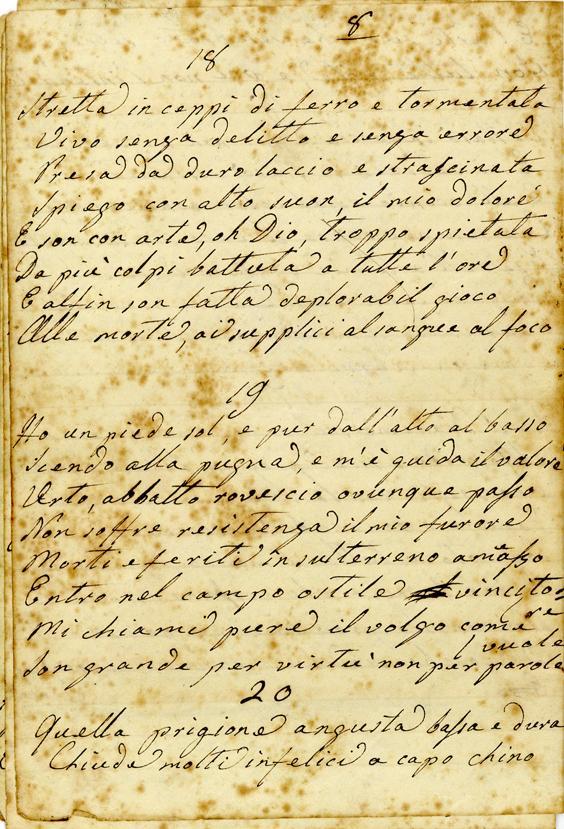 8
18
Stretta in ceppi di ferro e tormentata
Vivo senza delitto e senza errore
Presa da duro laccio e strascinata
Spiego con alto suon, il mio dolore
E son con arte, oh Dio, troppo spietata
Da più colpi battuta a tutte l'ore
E alfin son fatta deplorabil gioco
Alle morte, ai supplici al sangue al foco
19
Ho un piede sol, e pur dall'alto al basso
Scendo alla pugna, e m'è guida il valore
Urto, abbatto rovescio ovunque passo
Non soffre resistenza il mio furore
Morti e feriti in sul terreno amasso
Entro nel campo ostile vincito
re
Mi chiami pure il volgo come
vuole
Son grande per virtù non per parole
20
Quella prigione angusta bassa e dura
Chiude molti infelici a capo chino